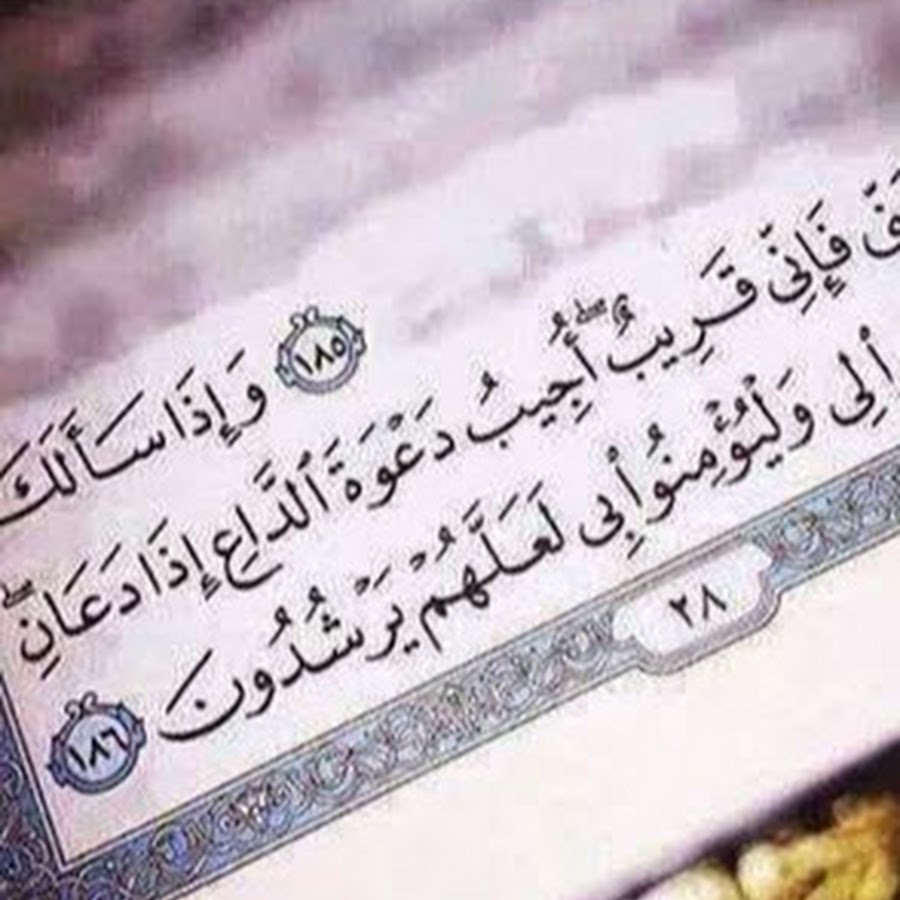 ١٨٥ وَإِذَا سَأَلَكَ
فَإِنِّي قَرِيبٌ ۖ أُجِيبُ دَعْوَةَ ٱلدَّاعِ إِذَا دَعَانِ ۖ
لِي وَلْيُؤْمِنُوا۟ بِي لَعَلَّهُمْ يَرْشُدُونَ ١٨٦
٢٨